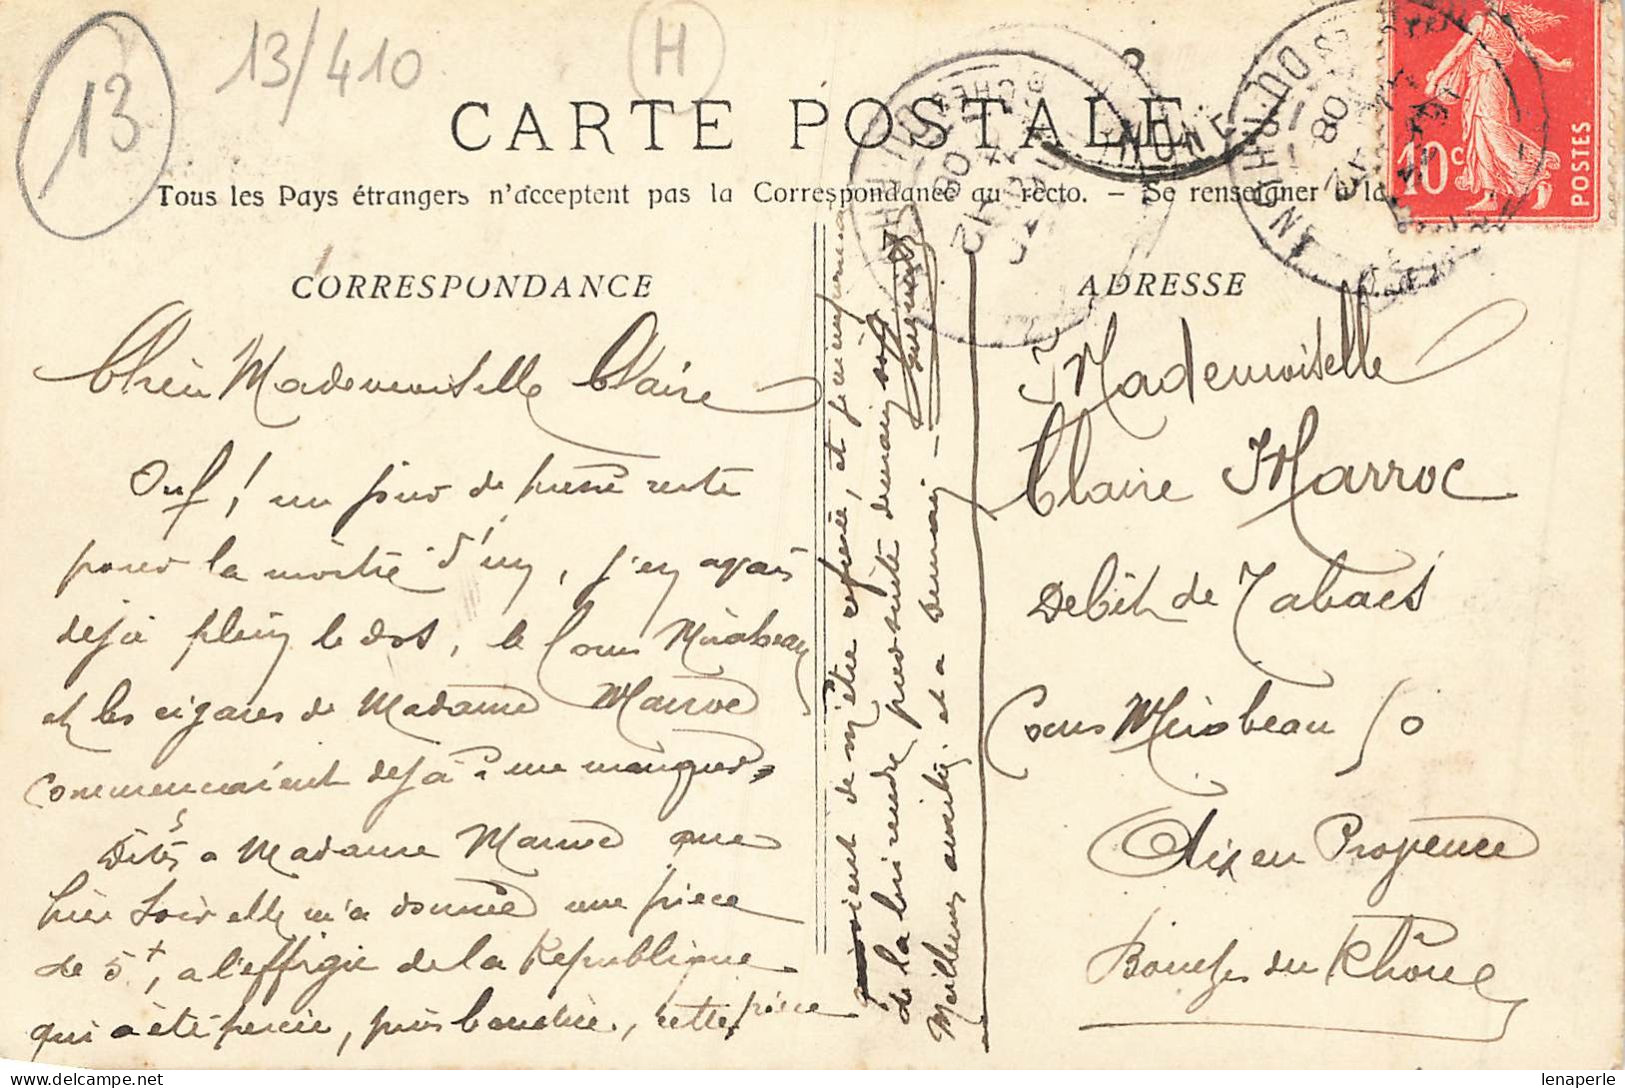 13
13/410
H
CARTE POSTALE
Tous les Pays étrangers n'acceptent pas la Correspondance au recto. — Se renseigner à la
10c
POSTES
CORRESPONDANCE
Mademoiselle Claire
Ouf! un jour de passé reste
pour la moitié d'un, j'en avais
déjà plein le dos, le Cours Mirabeau
et les cigares de Madame Marroc
commencaient déjà a me manquer.
Dites a Madame Marroc que
hier soir elle m'a donné une pièce
de 5f, a l'effigie de la République
qui a été percée, puis bouchée, cette pièce
vient de m'être refusée, et je m'empresse
de la lui rendre pour suite demain soir
Meilleures amitiés et a demain —
ADRESSE
Mademoiselle
Claire Marroc
Debit de Tabacs
Cours Mirabeau 50
Aix en Provence
Bouches du Rhône
lenaperle